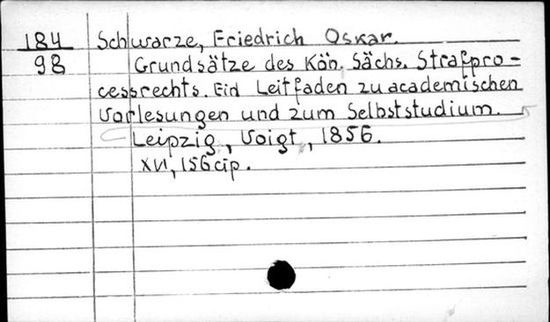 184 Schwarze, Friedrich Oskar.
98 Grundsätze des Kön. Sächs. Strafpro-
cessrechts. Ein Leitfaden zu academischen
Vorlesungen und zum Selbststudium.
Leipzig, Voigt, 1856.
XVI, 156